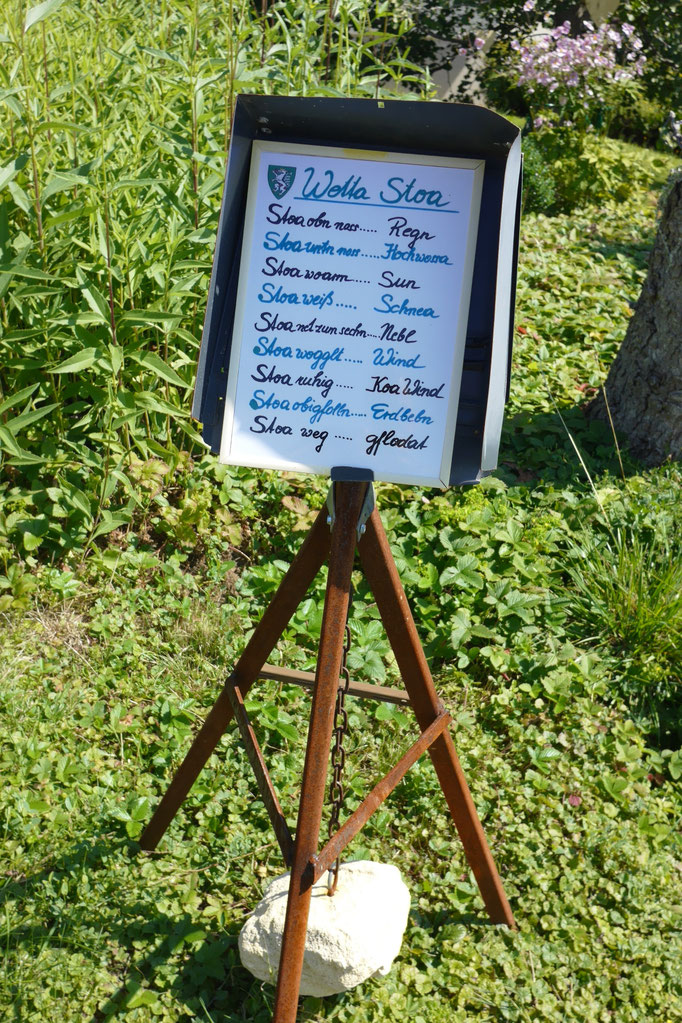 Wetta Stoa
Stoa obn nass..... Regn
Stoa untn nass..... Hochwossa
Stoa woarm..... Sun
Stoa weiß..... Schnea
Stoa net zum sechn..... Nebl
Stoa wogglt..... Wind
Stoa ruhig..... Koa Wind
Stoa obigfolln..... Erdbebn
Stoa weg..... gflodat